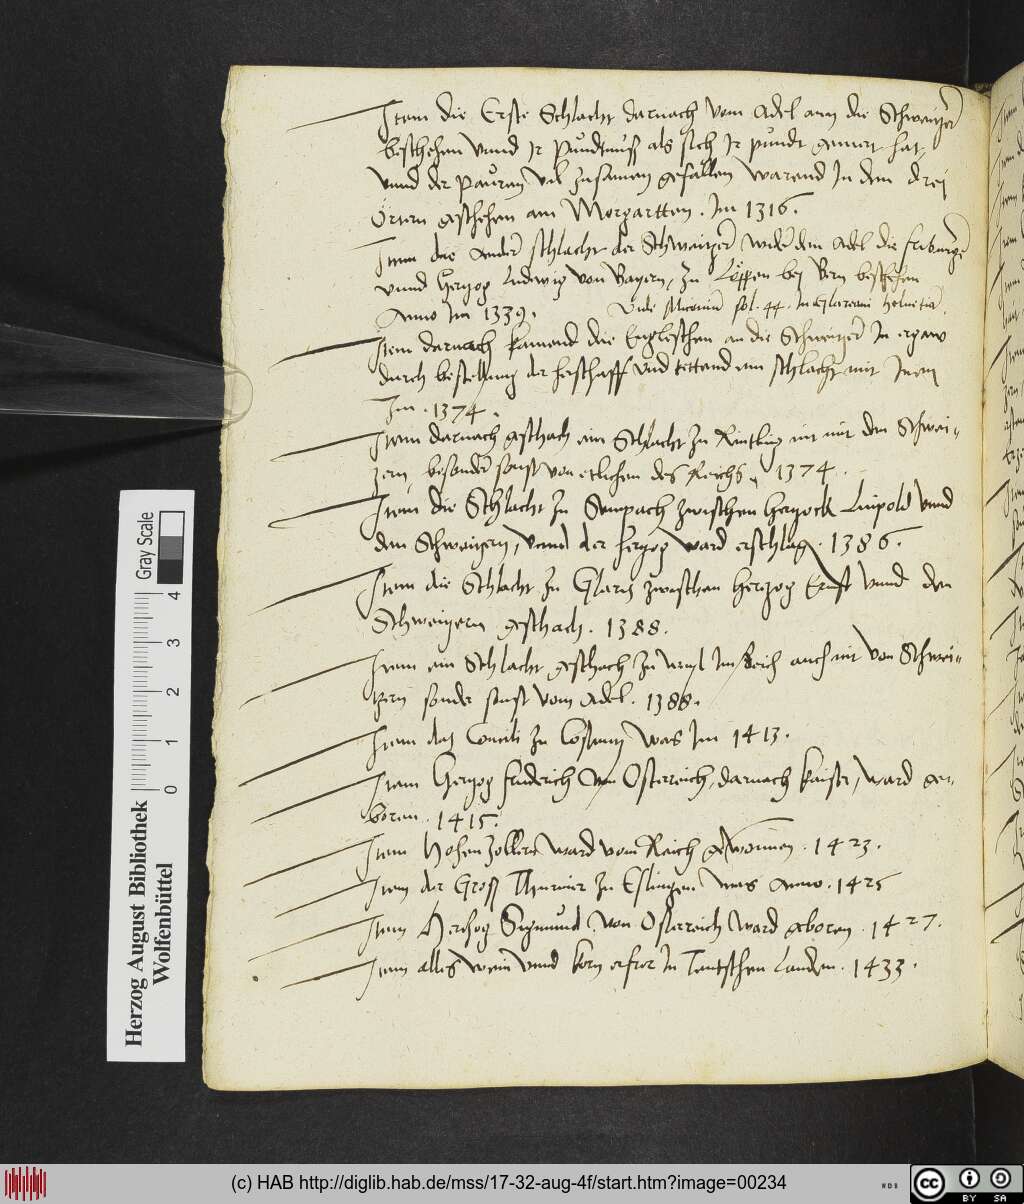 Item die Erste Schlacht darnach vom Adel ann die Schweitzer
beschehen vnnd Ir Pundtnuß als sich Ir pundt gemert hat,
vnnd der Pauren vil zusamen gefallen warend In dem drei
Örtern geschehen am Morgartten. Im 1316.
Item die Ander schlacht der Schweitzer wider dem Adel die friburger
vnnd Hertzog Ludwig von Bayern, zu Löppen bej Bern beschehen
Anno Im 1339. Vide fol. 44. In Glareani Helvetia.
Item darnach kamend die Englischen an die Schweitzer In ergaw
durch bestellung der herschafft vnd tettend ein schlacht mit Inen
Im. 1374.
Item darnach geschach ein Schlacht zu nit mit den Schwei-
zern, besonder sonst von etlichen des Reichs, 1374.
Item die Schlacht zu Sempach zwischen Hertzock Lüpold vnnd
den Schweitzern, vnnd der hertzog ward erschlag. 1386.
Item die Schlacht zu Glaris zwischen hertzog Ernst vnnd den
Schweitzern geschach. 1388.
Item ein Schlacht geschach zu wyl Im Reich auch nit von Schwei-
tzern sonder sonst vom Adel. 1388.
Item das Concili zu Costantz was Im 1413.
Item Hertzog friderich von Osterreich, darnach keiser, ward ge-
boren. 1415.
Item Hohenzollern ward vom Reich gewonnen. 1423.
Item der Groß Thurnier zu Eslingen was Anno. 1425
Item Hertzog Sigmund von Osterreich ward geboren. 1427.
Item alles wein vnnd korn erfror In Teutschen Landen. 1433.
Herzog August Bibliothek
Wolfenbüttel
Gray Scale
0 1 2 3 4
(c) HAB http://diglib.hab.de/mss/17-32-aug-4f/start.htm?image=00234
WDB
cc BY SA